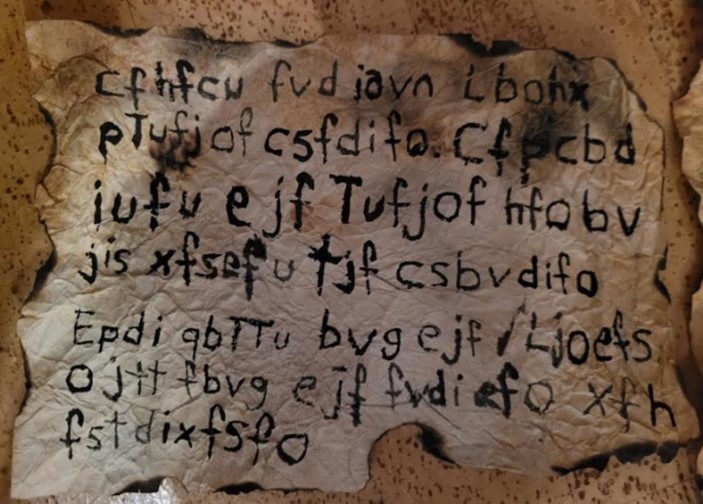 Cfhfcu fvd iavn Lbohx
pTufjof csfdifo. Cfpcbd
iufu ejf Tufjof hfobv
jis xfsefu tjf csbvdifo
Epdi qbTTu bvg ejf / Ljoefs
Ojtt fbvg ejf fvdi efo xfh
fstdixfsfo